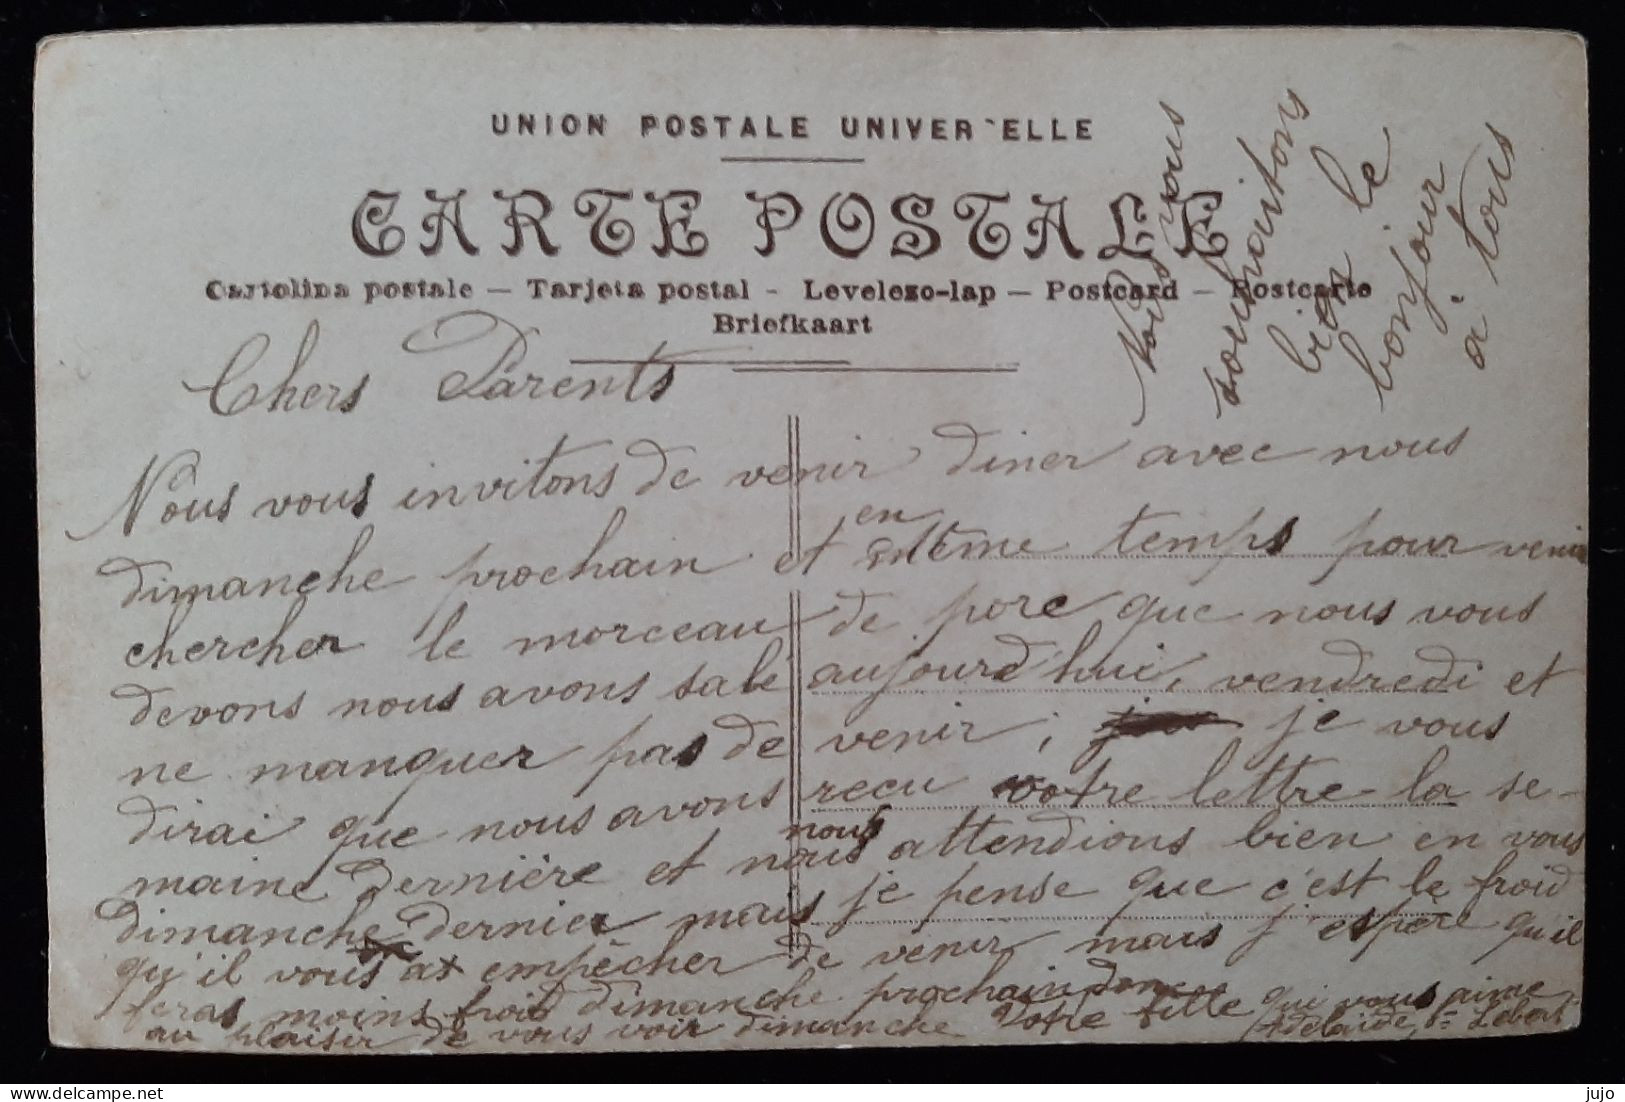 UNION POSTALE UNIVER ELLE
CARTE POSTALE
Cartolina postale – Tarjeta postal - Levelezo-lap – Postcard – Postcarte
Briefkaart
Chers Parents
Nous vous invitons de venir diner avec nous
dimanche prochain et en même temps pour venir
chercher le morceau de porc que nous vous
devons nous avons salé aujourd'hui, vendredi et
ne manquer pas de venir, je vous
dirai que nous avons recu votre lettre la se-
maine dernière et nous nous attendions bien en vous
dimanche dernier mais je pense que c'est le froid
qu'il vous at empêcher de venir mais j'espère qu'il
feras moins froid dimanche prochain donc
au plaisir de vous voir dimanche Votre fille qui vous aime
Adelaïde,
Nous vous
souhaitons
bien le
bonjour
a tous
jujo